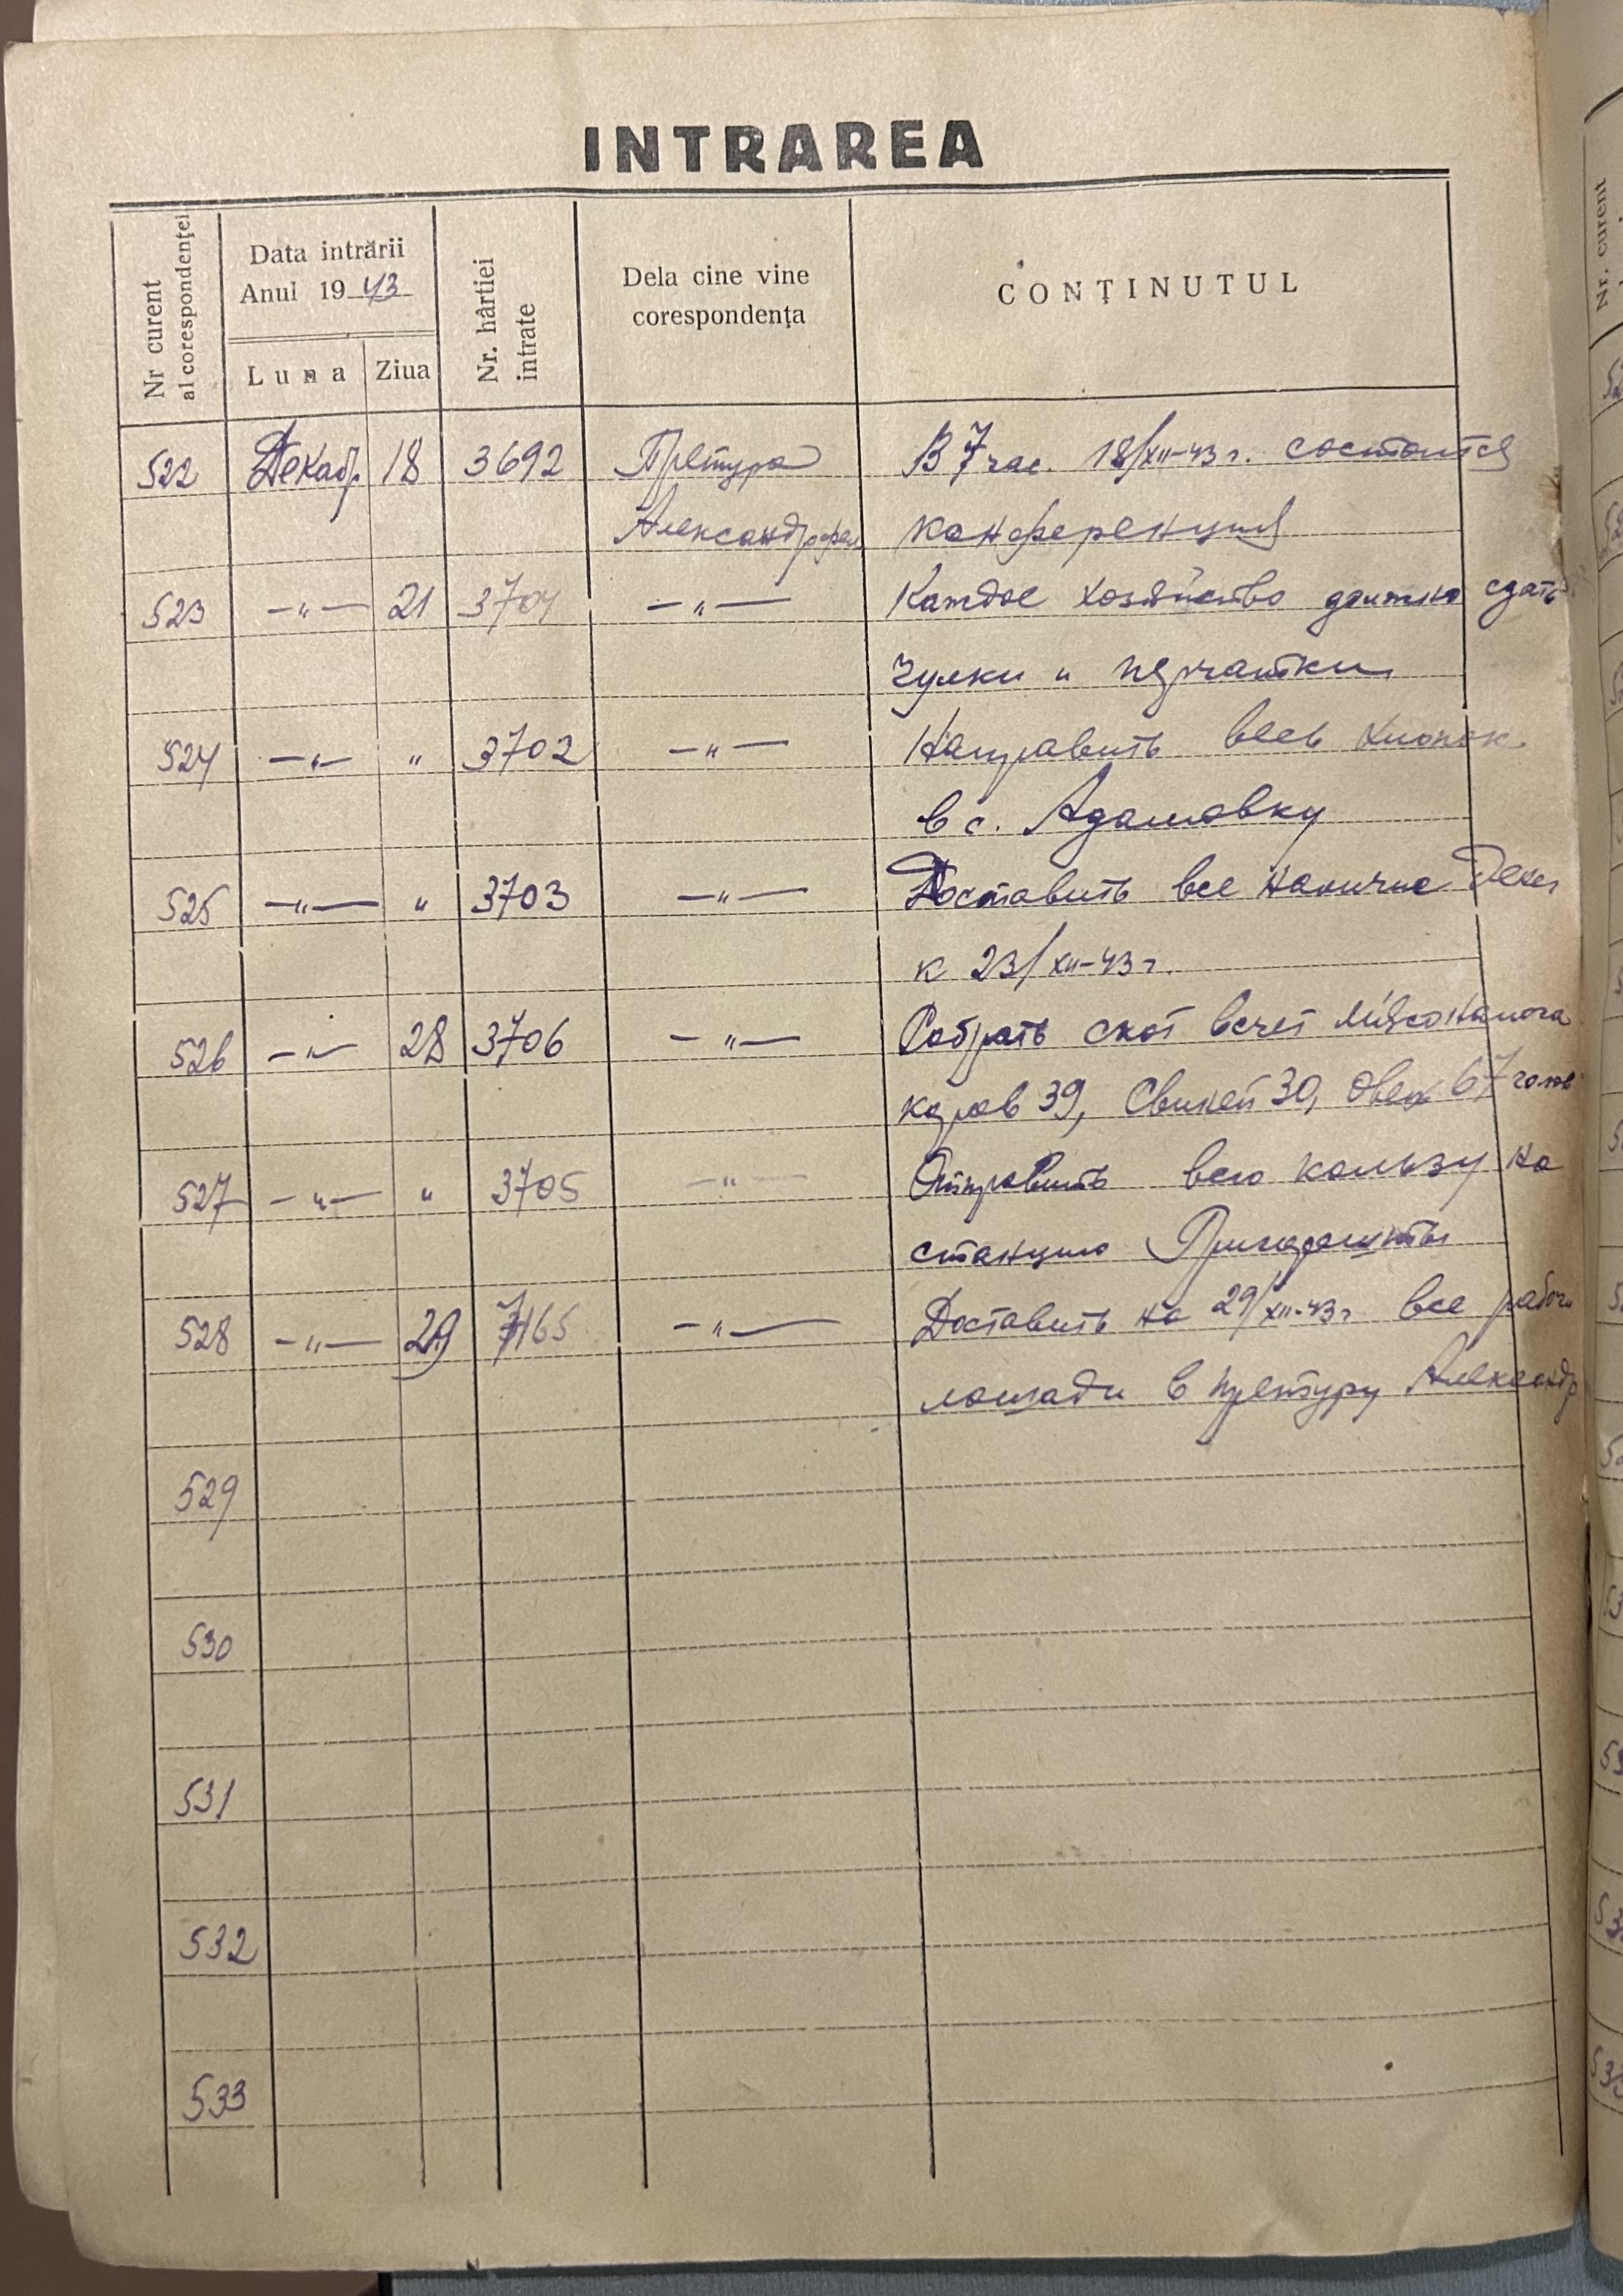 INTRAREA
Nr curent al corespondenţei
Data intrării
Anul 19 43
Luna Ziua
Nr. hârtiei intrate
Dela cine vine
corespondenţa
CONŢINUTUL
522 Декабр 18 3692 Претура В 7 час. 18/XII-43 г. состоится
Александрфел конференция
523 —„— 21 3701 —„— Каждое хозяйство должно сдать
чулки и перчатки
524 —„— „ 3702 —„— Направить весь хлопок
в с. Адамовку
525 —„— „ 3703 —„— Доставить все
к 23/XII-43 г.
526 —„— 28 3706 —„— Собрать скот всчет Мясоналога
коров 39, Свиней 30, Овец 67 голов
527 —„— „ 3705 —„— Отправить всю кользу на
станцию
528 —„— 29 7165 —„— Доставить на 29/XII-43 г все рабочи
лошади в претуру Александр
529
530
531
532
533
Nr. curent